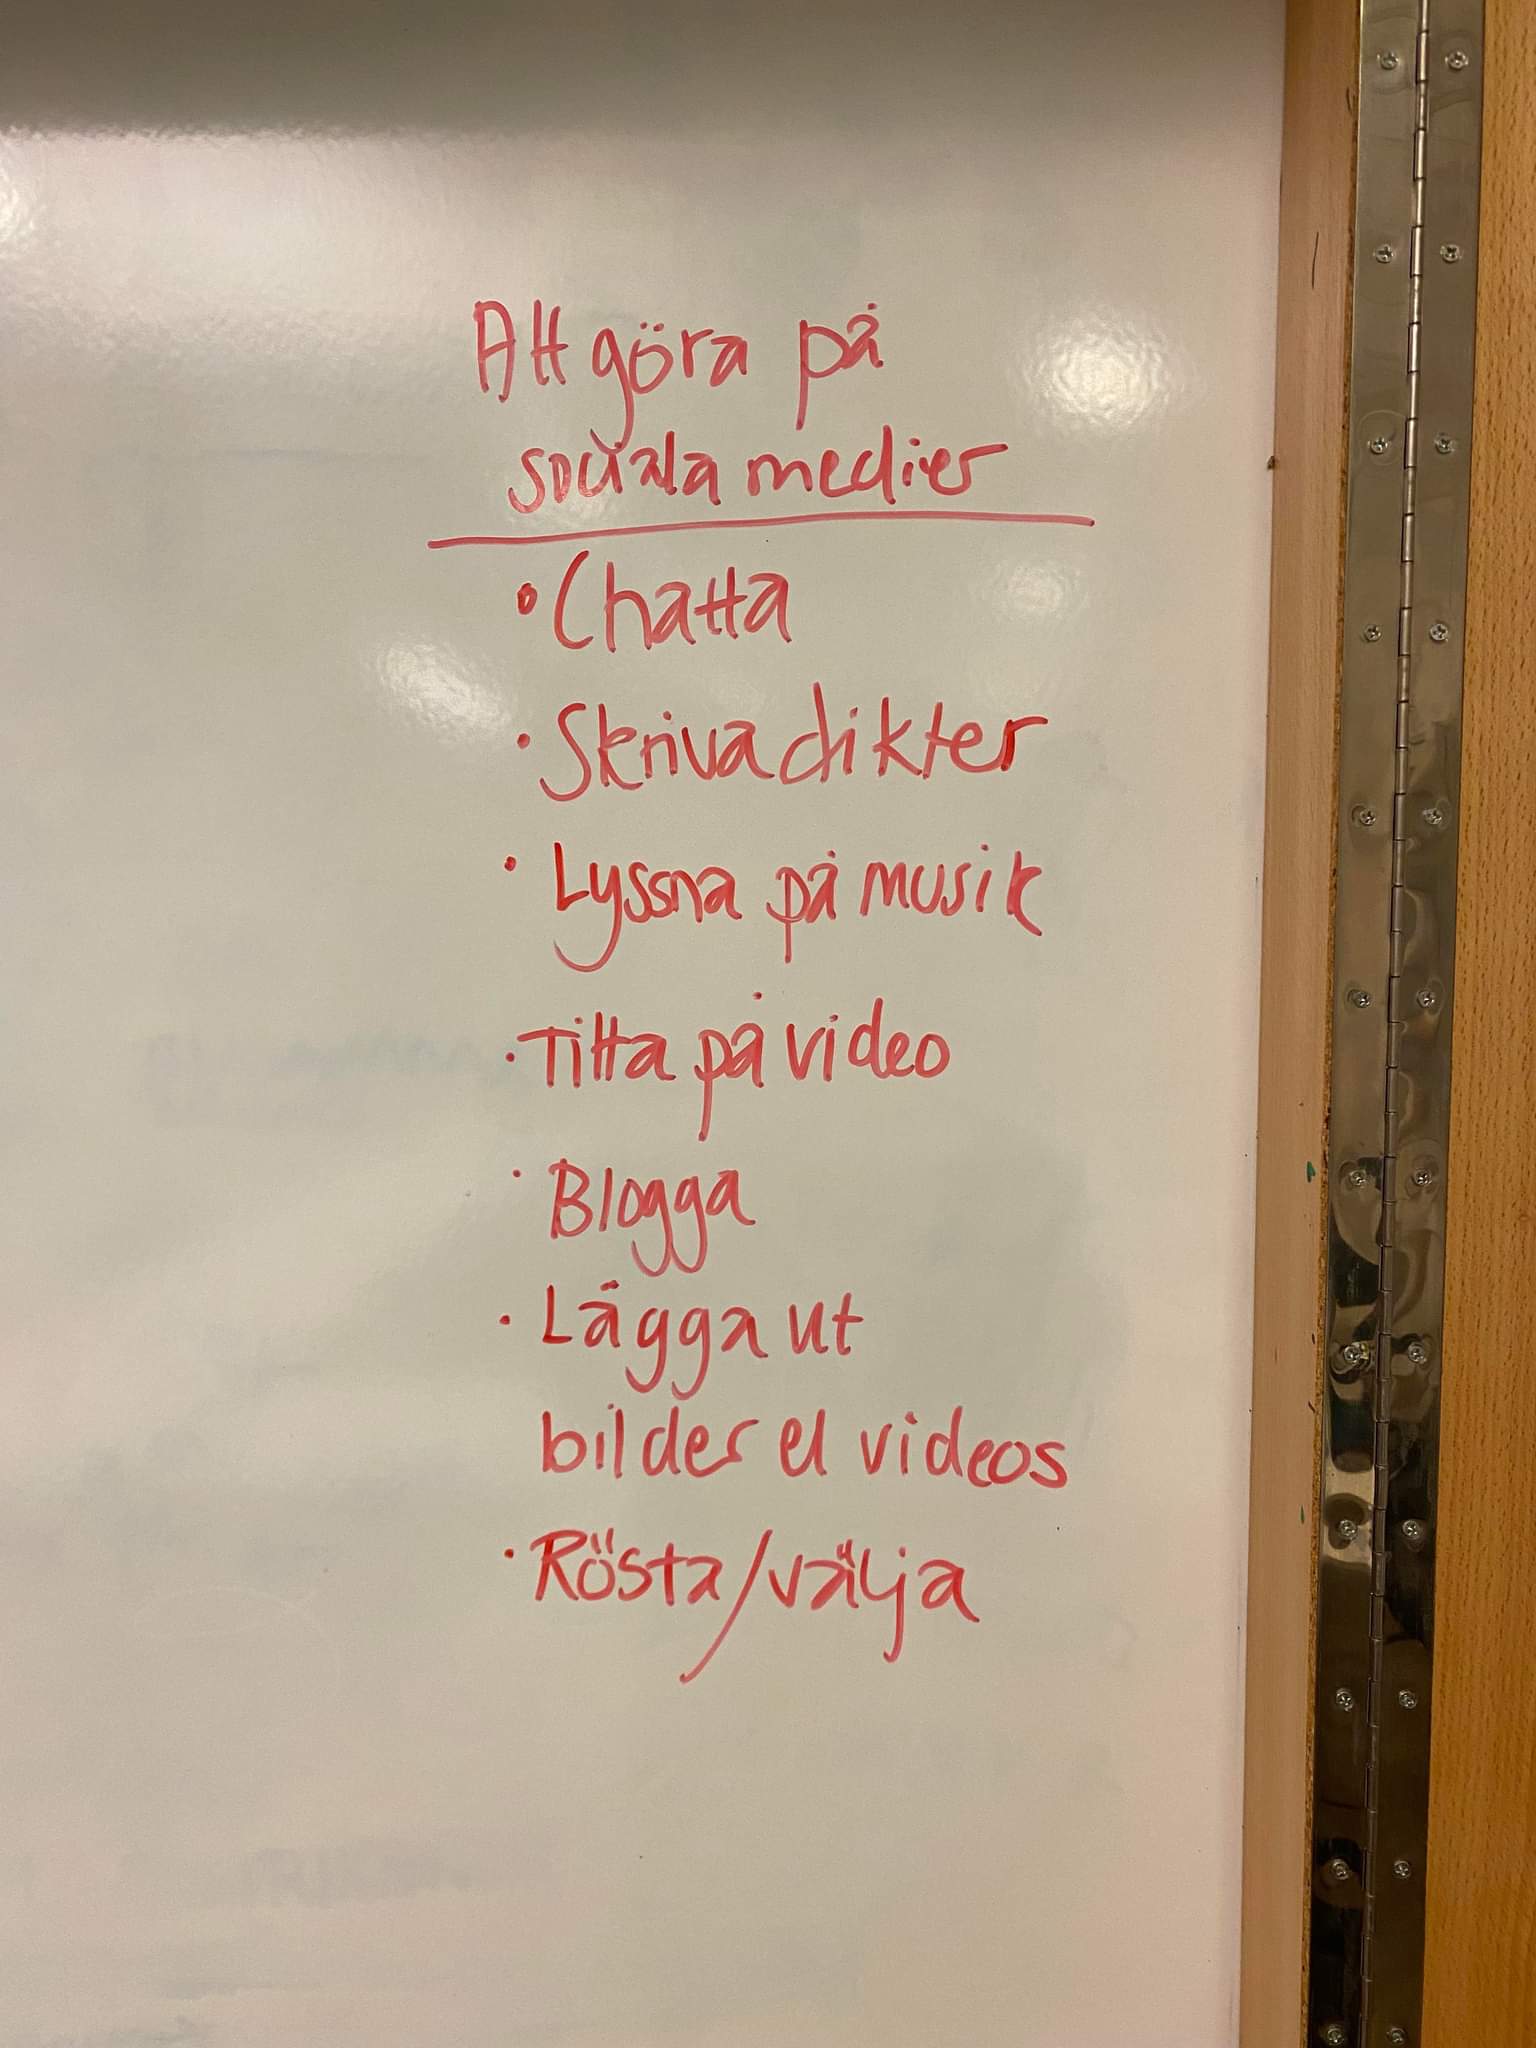 Att göra på
sociala medier
• Chatta
• Skriva dikter
• Lyssna på musik
• Titta på video
• Blogga
• Lägga ut
bilder el videos
• Rösta/välja